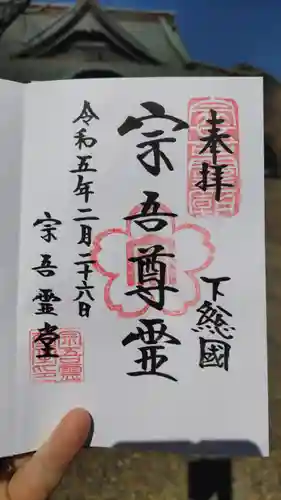 奉拝
下総國
宗吾尊霊
令和五年二月二十六日
宗吾霊堂